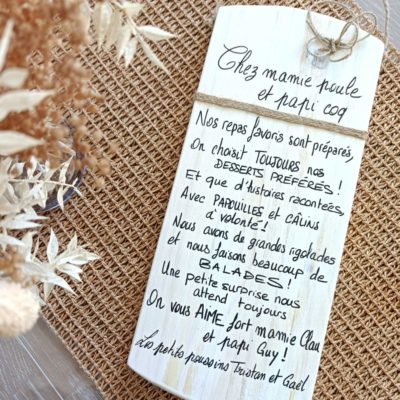 Chez mamie poule
et papi coq
Nos repas favoris sont préparés,
On choisit TOUJOURS nos
DESSERTS PRÉFÉRÉS !
Et que d'histoires racontées,
Avec PAPOUILLES et CÂLINS
à volonté !
Nous avons de grandes rigolades
et nous faisons beaucoup de
BALADES !
Une petite surprise nous
attend toujours
On vous AIME fort mamie Clau
et papi Guy !
Les petits poussins Tristan et Gaël